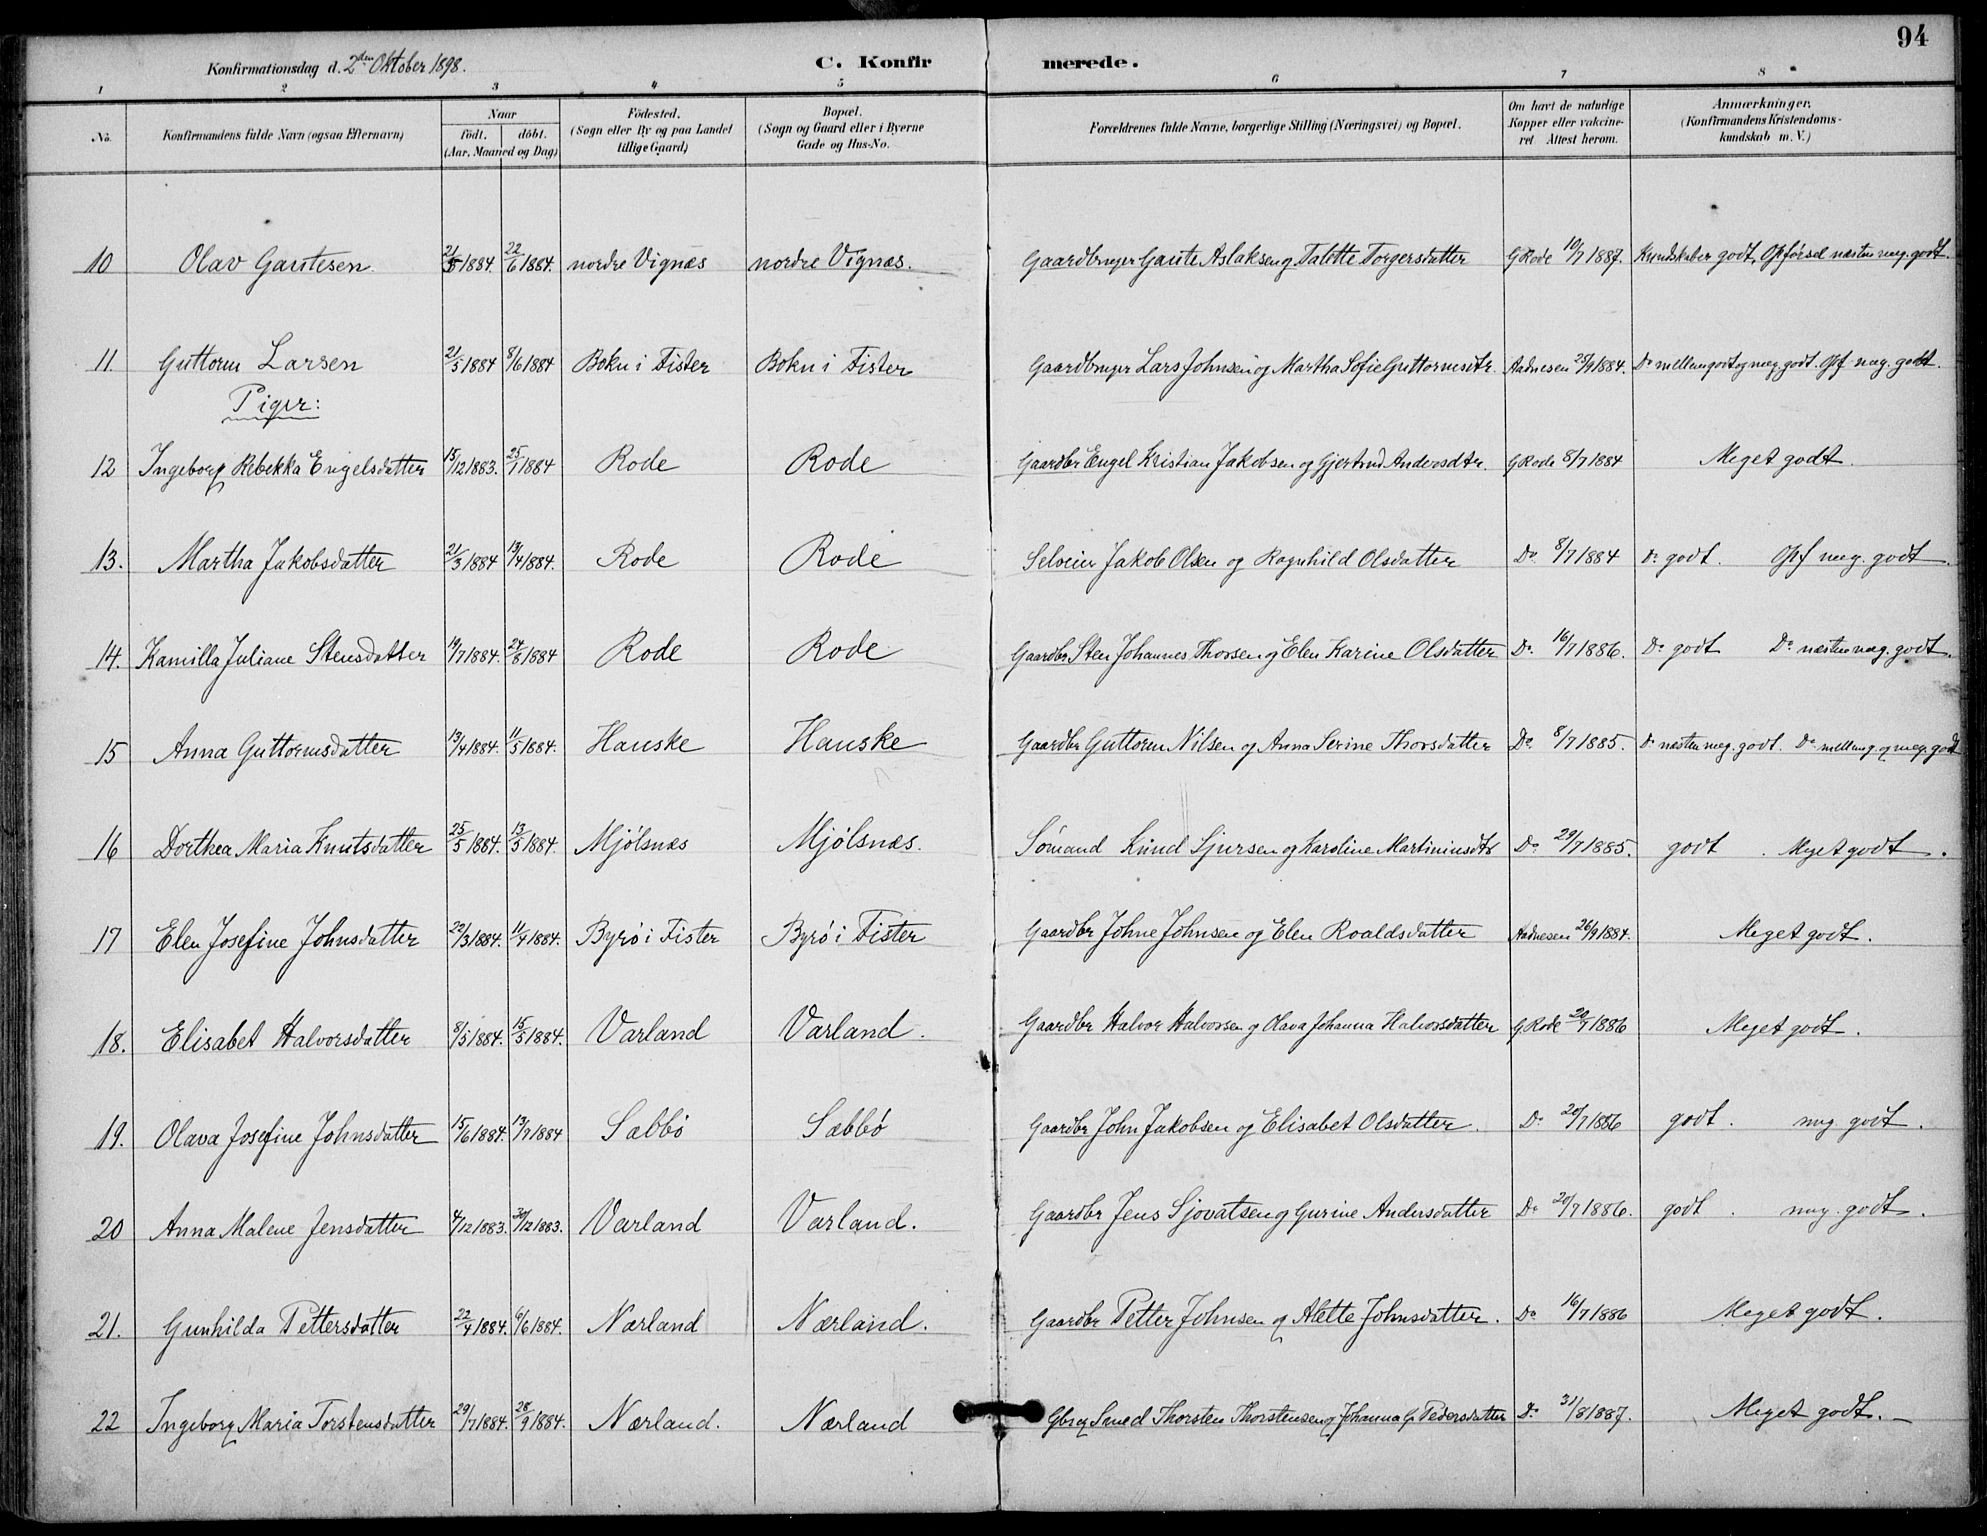 94
Konfirmationsdag d. 2den Oktober 1898.
C. Konfirmerede.
1 2 3 4 5 6 7 8
No. | Konfirmandens fulde Navn (ogsaa Efternavn) | Naar födt. döbt. (Aar, Maaned og Dag) | Födested. (Sogn eller By og paa Landet tillige Gaard) | Bopæl. (Sogn og Gaard eller i Byerne Gade og Hus-No. | Forældrenes fulde Navne, borgerlige Stilling (Næringsvei) og Bopæl. | Om havt de naturlige Kopper eller vakcineret Attest herom. | Anmærkninger, (Konfirmandens Kristendomskundskab m. V.)
10 Olav Gautesen 21/5 1884. 22/6 1884. nordre Vignæs nordre Vignæs. Gaardbruger Gaute Aslaksen og Talette Torgersdatter G Rode 10/7 1887. Kundskaber godt, Opförsel næsten meg. godt.
11. Guttorm Larsen 21/5 1884 8/6 1884 Bokn i Fister Bokn i Fister Gaardbruger Lars Johnsen og Martha Sofie Guttormsdtr. Aadnesen 25/9 1884. Do mellem godt og meg. godt. Opf meg. godt.
Piger:
12 Ingeborg Rebekka Engelsdatter 15/12 1883. 25/1 1884 Rode Rode Gaardbr Engel Kristian Jakobsen og Gjertrud Andersdtr. G Rode 8/7 1884 Meget godt.
13. Martha Jakobsdatter 21/3 1884 13/4 1884. Rode Rode Selveier Jakob Olsen og Ragnhild Olsdatter Do 8/7 1884 Do godt. Opf meg. godt.
14. Kamilla Juliane Stensdatter 19/7 1884. 24/8 1884 Rode Rode Gaardbr. Sten Johannes Thorsen og Elen Karine Olsdatter Do. 16/7 1886. Do godt Do næsten meg. godt.
15 Anna Guttormsdatter 13/4 1884. 11/5 1884. Hauske Hauske Gaardbr Guttorm Nilsen og Anna Serine Thorsdatter Do. 8/7 1885. Do næsten meg. godt. Do mellem g. og meg. godt
16 Dorthea Maria Knutsdatter 25/5 1884. 13/5 1884. Mjölsnæs Mjölsnæs. Sömand Knud Sjursen og Karoline Martiniusdtr Do 29/7 1885. godt. Meget godt.
17 Elen Josefine Johnsdatter 22/3 1884. 11/4 1884. Byrö i Fister Byrö i Fister Gaardbr Johne Johnsen og Elen Roaldsdatter Aadnesen 26/9 1884. Meget godt.
18. Elisabet Halvorsdatter 8/5 1884. 15/5 1884. Varland Varland. Gaardbr Halvor Halvorsen og Olava Johanna Halvorsdatter G Rode 20/7 1886 Meget godt.
19. Olava Josefine Johnsdatter 15/6 1884. 13/9 1884 Sæbbö Sæbbö Gaardbr John Jakobsen og Elisabet Olsdatter. Do 20/7 1886 godt. meg godt.
20 Anna Malene Jensdatter 4/12 1883. 30/12 1883. Varland Varland. Gaardbr Jens Sjovatsen og Gurine Andersdatter Do 20/7 1886. godt. meg. godt.
21. Gunhilda Pettersdatter 22/4 1884. 6/6 1884. Nærland Nærland. Gaardbr Petter Johnsen og Alette Johnsdatter. Do 16/7 1886 Meget godt.
22 Ingeborg Maria Torstensdatter 29/7 1884. 28/9 1884. Nærland. Nærland Gbr og Smed Thorsten Thorstensen og Johanna G. Pedersdatter Do 31/8 1887. Meget godt.